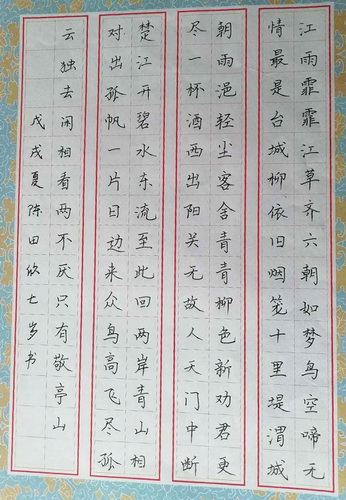 江雨霏霏江草齐六朝如梦鸟空啼无
情最是台城柳依旧烟笼十里堤渭城
朝雨浥轻尘客舍青青柳色新劝君更
尽一杯酒西出阳关无故人天门中断
楚江开碧水东流至此回两岸青山相
对出孤帆一片日边来众鸟高飞尽孤
云独去闲相看两不厌只有敬亭山
戊戌夏陈田欣七岁书